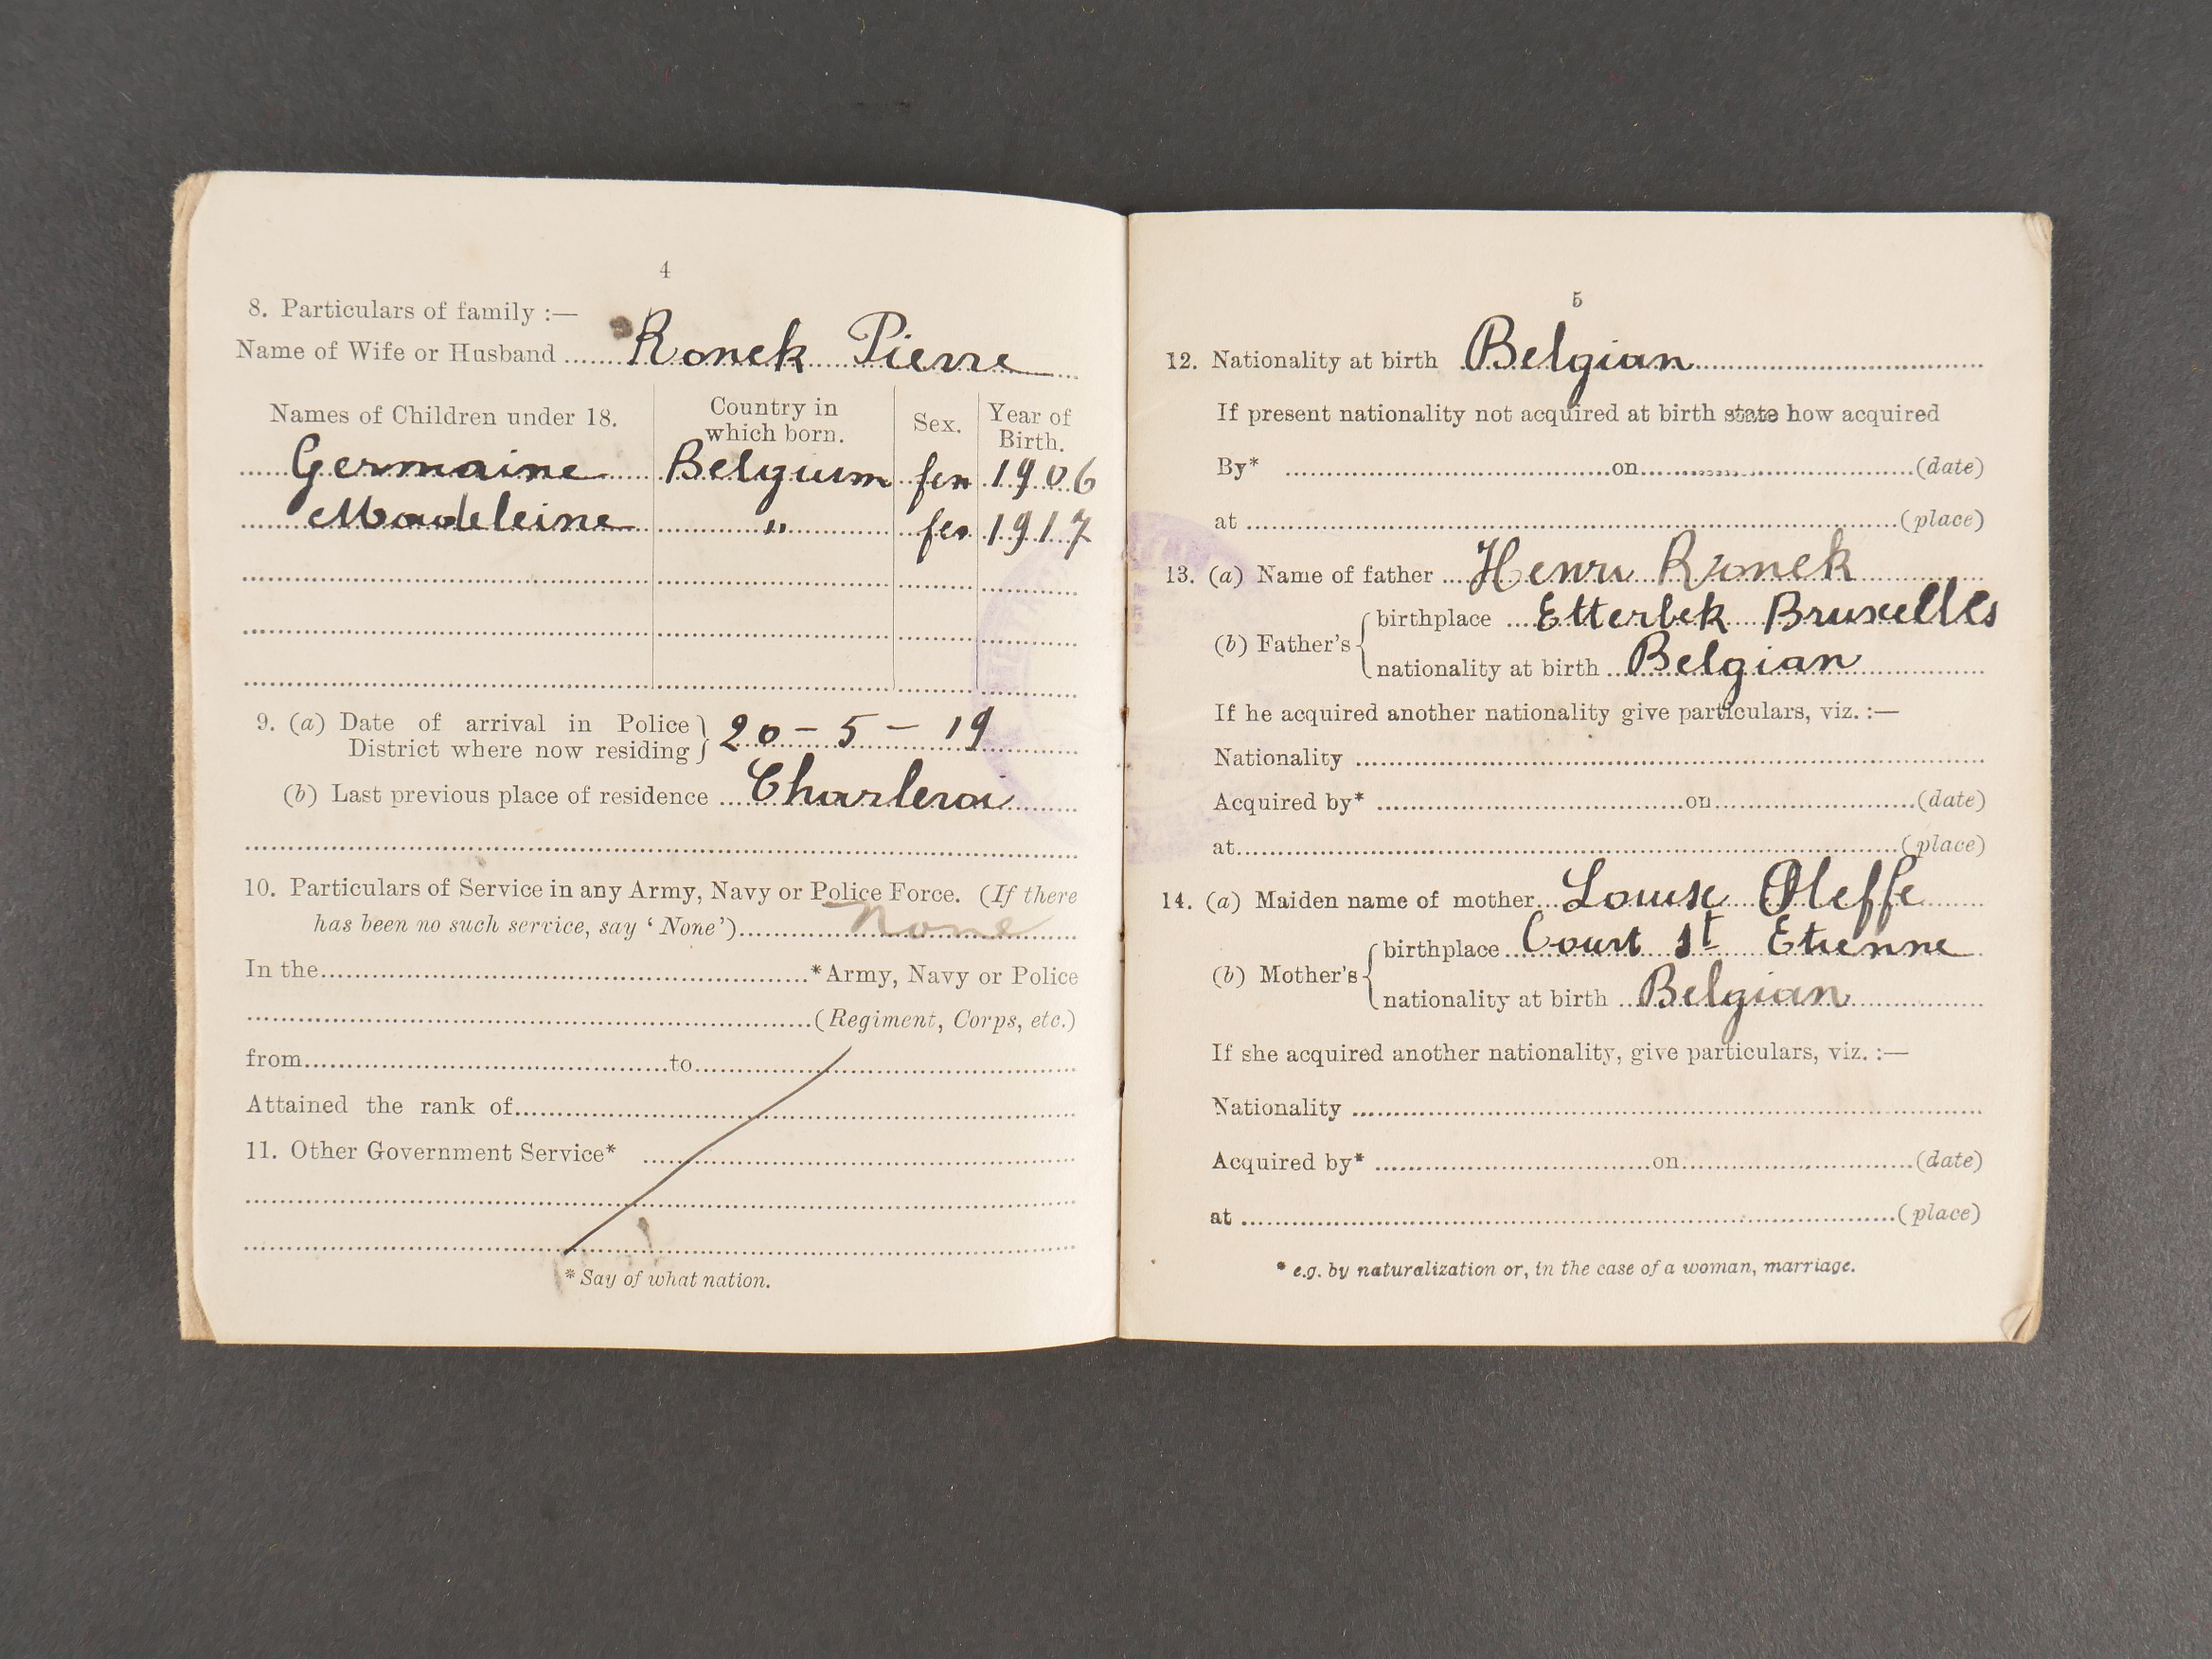 4
8. Particulars of family :—
Name of Wife or Husband ...... Ronek Pierre
Names of Children under 18. Country in which born. Sex. Year of Birth.
Germaine Belgium fem 1906
Madeleine " fem 1917
9. (a) Date of arrival in Police District where now residing } 20 - 5 - 19
(b) Last previous place of residence ... Charleroi
10. Particulars of Service in any Army, Navy or Police Force. (If there
has been no such service, say ‘None’)...... None
In the...... *Army, Navy or Police
......(Regiment, Corps, etc.)
from......to......
Attained the rank of......
11. Other Government Service* ......
* Say of what nation.
5
12. Nationality at birth Belgian
If present nationality not acquired at birth state how acquired
By* ......on......(date)
at ......(place)
13. (a) Name of father .... Henri Ronek
(b) Father's { birthplace .... Etterbek Bruxelles
nationality at birth ... Belgian
If he acquired another nationality give particulars, viz. :—
Nationality ......
Acquired by* ......on......(date)
at......(place)
14. (a) Maiden name of mother... Louise Oleffe
(b) Mother's { birthplace ... Court St Etienne
nationality at birth ... Belgian
If she acquired another nationality, give particulars, viz. :—
Nationality ......
Acquired by* ......on......(date)
at ......(place)
* e.g. by naturalization or, in the case of a woman, marriage.